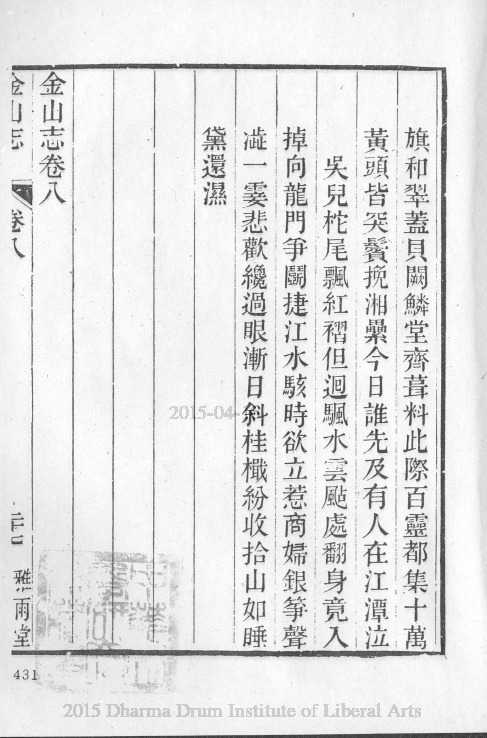 旗和翠蓋貝闕鱗堂齊葺料此際百靈都集十萬
黃頭皆突鬢挽湘纍今日誰先及有人在江潭泣
吳兒柁尾飄紅褶但迴颿水雲颭處翻身竟入
掉向龍門爭鬭捷江水駭時欲立惹商婦銀箏聲
澁一霎悲歡纔過眼漸日斜桂檝紛收拾山如睡
黛還濕
金山志卷八
金山志
卷八
雅雨堂
431
2015-04-
2015 Dharma Drum Institute of Liberal Arts